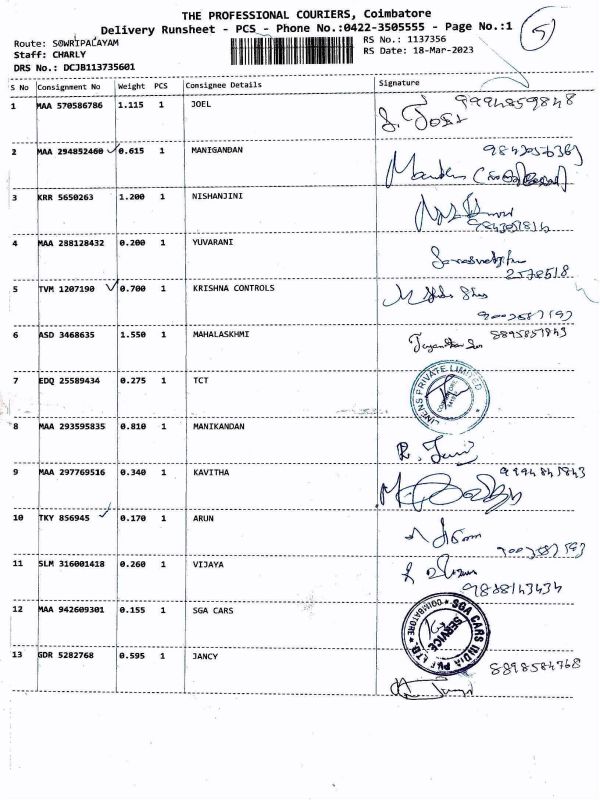 THE PROFESSIONAL COURIERS, Coimbatore
Delivery Runsheet - PCS - Phone No.:0422-3505555 - Page No.:1
5
Route: SOWRIPALAYAM
RS No.: 1137356
Staff: CHARLY
RS Date: 18-Mar-2023
DRS No.: DCJB113735601
S No Consignment No Weight PCS Consignee Details Signature
1 MAA 570586786 1.115 1 JOEL
9994859848
2 MAA 294852460 0.615 1 MANIGANDAN
3 KRR 5650263 1.200 1 NISHANJINI
4 MAA 288128432 0.200 1 YUVARANI
2578518
5 TVM 1207190 0.700 1 KRISHNA CONTROLS
6 ASD 3468635 1.550 1 MAHALASKHMI
7 EDQ 25589434 0.275 1 TCT
LINENS PRIVATE LIMITED
8 MAA 293595835 0.810 1 MANIKANDAN
9 MAA 297769516 0.340 1 KAVITHA
10 TKY 856945 0.170 1 ARUN
11 SLM 316001418 0.260 1 VIJAYA
9888143434
12 MAA 942609301 0.155 1 SGA CARS
SGA CARS INDIA PVT LTD
COIMBATORE
SERVICE
13 GDR 5282768 0.595 1 JANCY
8898584768